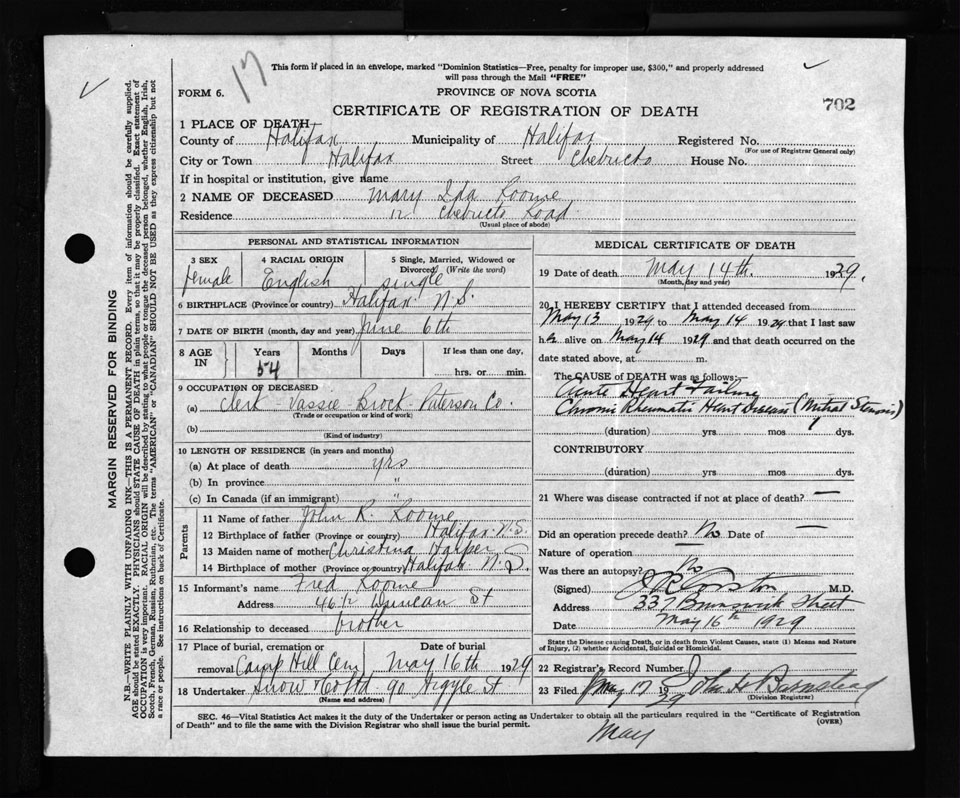 17
This form if placed in an envelope, marked "Dominion Statistics—Free, penalty for improper use, $300," and properly addressed
will pass through the Mail "FREE"
FORM 6.
PROVINCE OF NOVA SCOTIA
702
CERTIFICATE OF REGISTRATION OF DEATH
1 PLACE OF DEATH
County of Halifax Municipality of Halifax Registered No.
(For use of Registrar General only)
City or Town Halifax Street Chebucto House No.
If in hospital or institution, give name
2 NAME OF DECEASED Mary Ida Roome
Residence 12 Chebucto Road
(Usual place of abode)
PERSONAL AND STATISTICAL INFORMATION
3 SEX female
4 RACIAL ORIGIN English
5 Single, Married, Widowed or
Divorced (Write the word) single
6 BIRTHPLACE (Province or country) Halifax N.S.
7 DATE OF BIRTH (month, day and year) June 6th
8 AGE IN
Years Months Days If less than one day,
54 hrs. or min.
9 OCCUPATION OF DECEASED
(a) Clerk Vassie Brock Paterson Co.
(Trade or occupation or kind of work)
(b)
(Kind of industry)
10 LENGTH OF RESIDENCE (in years and months)
(a) At place of death yrs
(b) In province "
(c) In Canada (if an immigrant) "
Parents
11 Name of father John R. Roome
12 Birthplace of father (Province or country) Halifax N.S.
13 Maiden name of mother Christina Harper
14 Birthplace of mother (Province or country) Halifax N.S.
15 Informant's name Fred Roome
Address 46½ Duncan St
16 Relationship to deceased brother
17 Place of burial, cremation or Date of burial
removal Camp Hill Cem May 16th 1929
18 Undertaker Snow & Co Ltd 90 Argyle St
(Name and address)
MEDICAL CERTIFICATE OF DEATH
19 Date of death May 14th. 1929.
(Month, day and year)
20 I HEREBY CERTIFY that I attended deceased from
May 13 1929 to May 14 1929 that I last saw
her alive on May 14 1929 and that death occurred on the
date stated above, at m.
The CAUSE OF DEATH was as follows:—
Acute Heart Failure
Chronic Rheumatic Heart Disease (Mitral Stenosis)
(duration) yrs mos 1 dys.
CONTRIBUTORY
(duration) yrs mos dys.
21 Where was disease contracted if not at place of death? —
Did an operation precede death? No Date of —
Nature of operation —
Was there an autopsy? No
(Signed) Corston M.D.
Address 337 Brunswick Street
Date May 16th 1929
State the Disease causing Death, or in death from Violent Causes, state (1) Means and Nature
of Injury, (2) whether Accidental, Suicidal or Homicidal.
22 Registrar's Record Number
23 Filed May 17 1929 John H Barnstead
(Division Registrar)
SEC. 46—Vital Statistics Act makes it the duty of the Undertaker or person acting as Undertaker to obtain all the particulars required in the "Certificate of Registration
of Death" and to file the same with the Division Registrar who shall issue the burial permit.
(OVER)
May
MARGIN RESERVED FOR BINDING
N.B.—WRITE PLAINLY WITH UNFADING INK—THIS IS A PERMANENT RECORD. Every item of information should be carefully supplied.
AGE should be stated EXACTLY. PHYSICIANS should STATE CAUSE OF DEATH in plain terms, so that it may be properly classified. Exact statement of
OCCUPATION is very important. RACIAL ORIGIN will be described by stating to what people or tongue the deceased person belonged, whether English, Irish,
Scotch, French, German, Russian, Ruthenian, etc. The terms "AMERICAN" or "CANADIAN" SHOULD NOT BE USED as they express citizenship but not
a race or people. See instructions on back of Certificate.